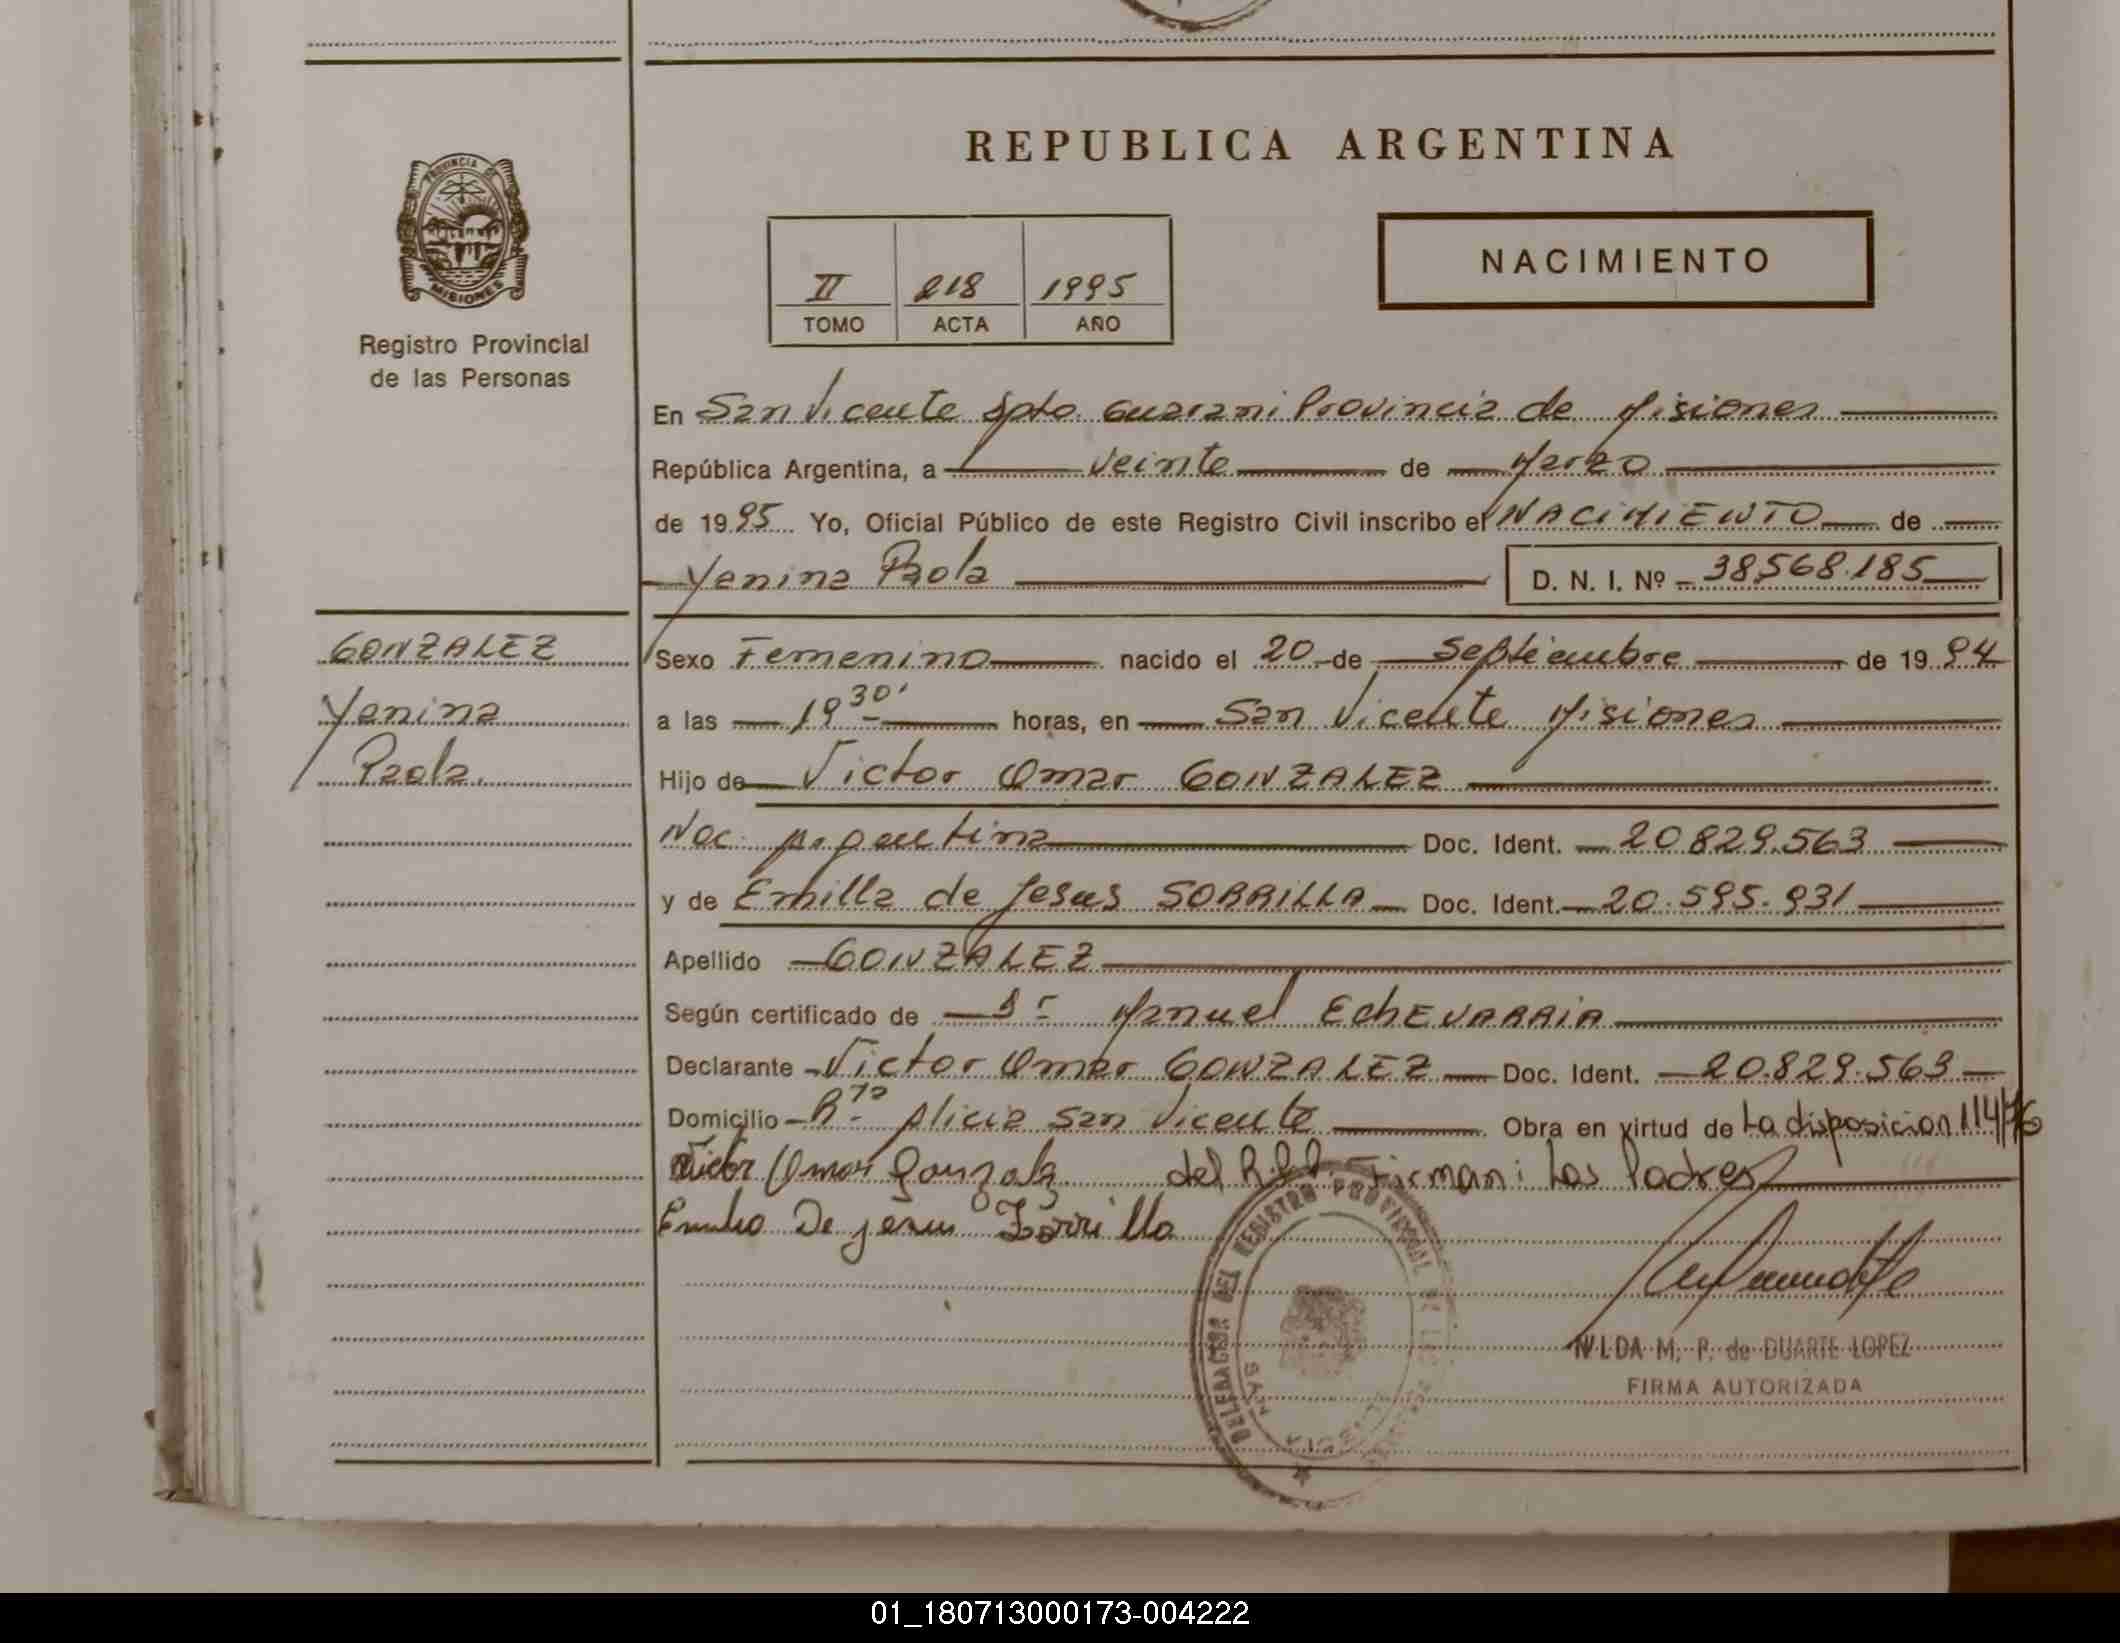 REPUBLICA ARGENTINA
PROVINCIA DE
MISIONES
Registro Provincial
de las Personas
II 218 1995
TOMO ACTA AÑO
NACIMIENTO
En San Vicente Dpto. Guarani Provincia de Misiones
República Argentina, a veinte de Marzo
de 1995 Yo, Oficial Público de este Registro Civil inscribo el NACIMIENTO de
Yanina Paola D. N. I. Nº 38.568.185
GONZALEZ
Yanina
Paola.
Sexo Femenino nacido el 20 de Septiembre de 1994
a las 19 30' horas, en San Vicente Misiones
Hijo de Victor Omar GONZALEZ
Nac. Argentina Doc. Ident. 20.829.563
y de Emilia de Jesus SORRILLA Doc. Ident. 20.595.931
Apellido GONZALEZ
Según certificado de Dr Manuel EChEVARRIA
Declarante Victor Omar GONZALEZ Doc. Ident. 20.829.563
Domicilio Alicia San Vicente Obra en virtud de La disposicion 114/76
Victor Omar Gonzalez del R.P.P. Firman: Los Padres
Emilia De jesus Zorrilla
DELEGACION DEL REGISTRO PROVINCIAL DE LAS
SAN
NILDA M. P. de DUARTE LOPEZ
FIRMA AUTORIZADA
01_180713000173-004222